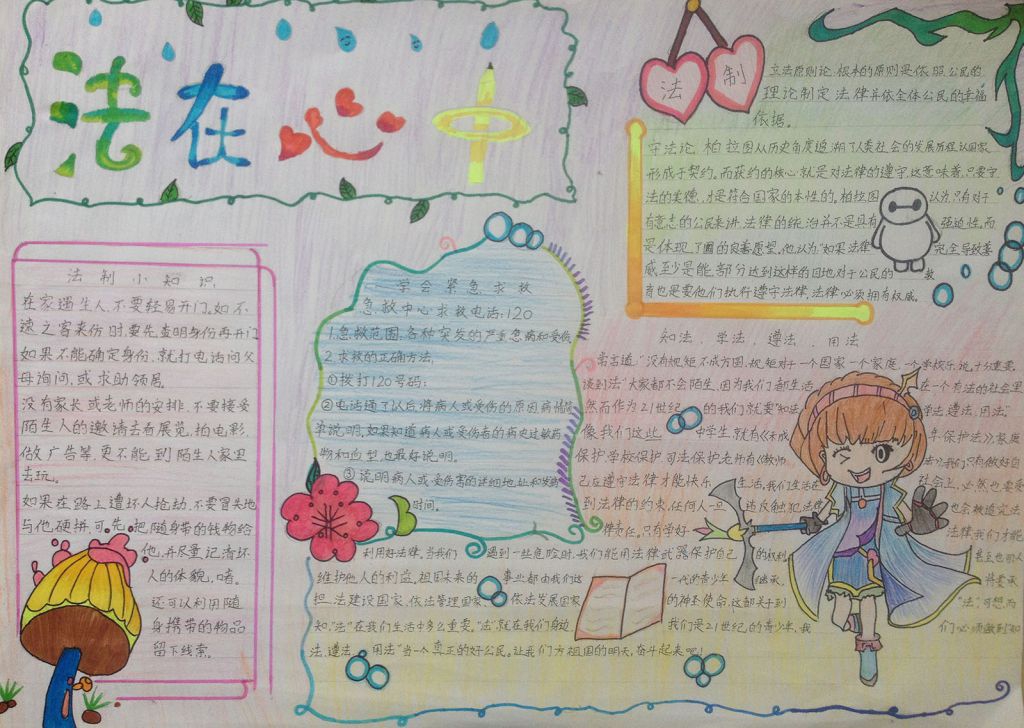 法在心中
法制
立法原则论,根本的原则是依照公民的
理论制定法律并依全体公民的幸福
依据。
守法论,柏拉图从历史角度追溯了人类社会的发展历程,认国家
形成于契约,而获约的核心就是对法律的遵守,这意味着,只要守
法的美德,才是符合国家的本性的。柏拉图认为,只有对于
有意志的公民来讲,法律的统治并不是具有强迫性,而
是体现了国的良善愿望。他认为"如果法律完全导致善
或至少是能部分达到这样的目地对于公民的教
育也是要他们执行遵守法律,法律必须拥有权威。
法制小知识
在家遇生人,不要轻易开门,如不
速之客来访时要先查明身份再开门
如果不能确定身份,就打电话问父
母询问,或求助邻居
没有家长或老师的安排,不要接受
陌生人的邀请去看展览,拍电影,
做广告等,更不能到陌生人家里
去玩。
如果在路上遭坏人抢劫,不要冒失地
与他硬拼可先把随身带的钱物给
他,并尽量记清坏
人的体貌,
还可以利用随
身携带的物品
留下线索。
学会紧急求救
急救中心求救电话:120
1.急救范围:各种突发的严重急病和受伤
2.求救的正确方法,
①拨打120号码:
②电话通了以后,将病人或受伤的原因病情简
单说明,如果知道病人或受伤者的病史过敏药
物和血型也最好说明。
③说明病人或受伤害的详细地址和发病
时间。
知法、学法、遵法、用法
常言道:"没有规矩不成方圆,规矩对于一个国家一个家庭,一个学校来说,十分重要,
谈到法"大家都不会陌生,因为我们都生活在一个有法的社会里
然而作为21世纪的我们就要"知法学法,遵法,用法"
像我们这些中学生,就有《未成年保护法》,家庭
保护,学校保护,司法保护,老师有《教师法》,我们只有做好自
己在遵守法律才能快乐生活,我们生活在社会上,必然也要受
到法律的约束,任何人一违反触犯法也会被追究法
律责任。只有学好法律,我们才能
利用好法律。当我们遇到一些危险时,我们能用法律武器保护自己的权利,甚至也可人
维护他人的利益。祖国未来的事业都由我们这一代的青少年继承,将要承
担,法建设国家,依法管理国家,依法发展国家的神圣使命,这都关于到"法",可想而
知,"法"在我们生活中多么重要。"法"就在我们身边我们是21世纪的青少年,我们必须做到"知
法、遵法、用法"当一个真正的好公民。让我们为祖国的明天,奋斗起来吧!